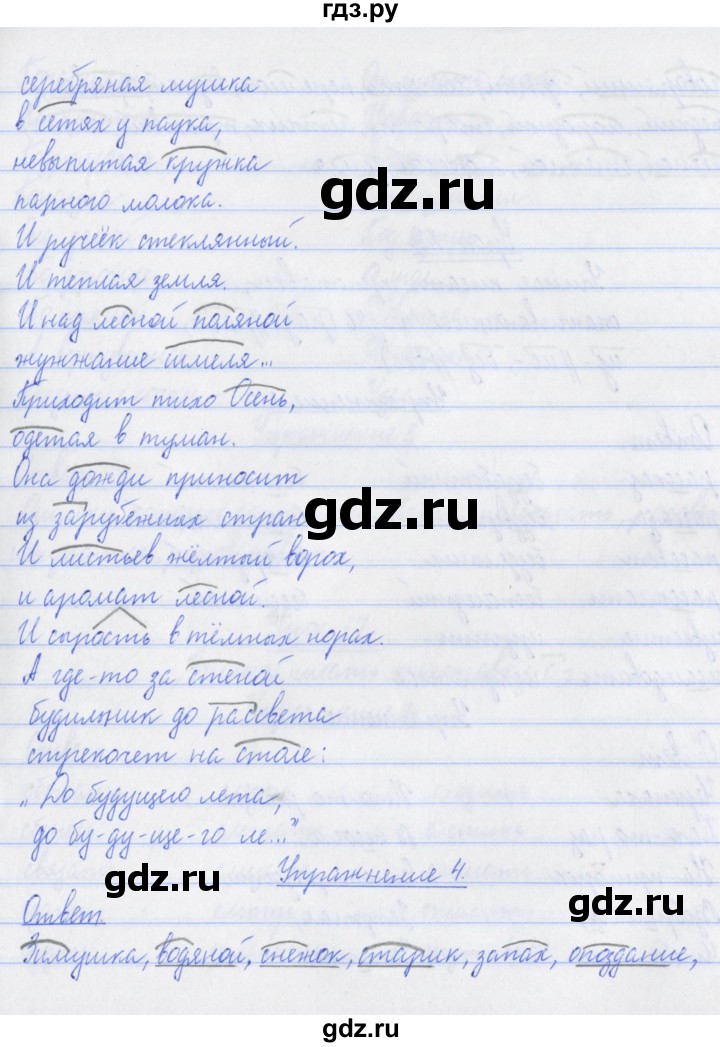 гдз.ру
серебряная мушка
в сетях у паука,
невыпитая кружка
парного молока.
gdz.ru
И ручеёк стеклянный.
И теплая земля.
И над лесной поляной
жужжание шмеля...
Приходит тихо Осень,
одетая в туман.
Она дожди приносит
из зарубежных стран
gdz.ru
И листьев жёлтый ворох,
и аромат лесной.
И сырость в тёмных норах.
А где-то за стеной
будильник до рассвета
стрекочет на столе:
„До будущего лета,
до бу-ду-ще-го ле..."
Упражнение 4.
gdz.ru
gdz.ru
Ответ.
Зимушка, водяной, снежок, старик, запах, опоздание,
gdz.ru